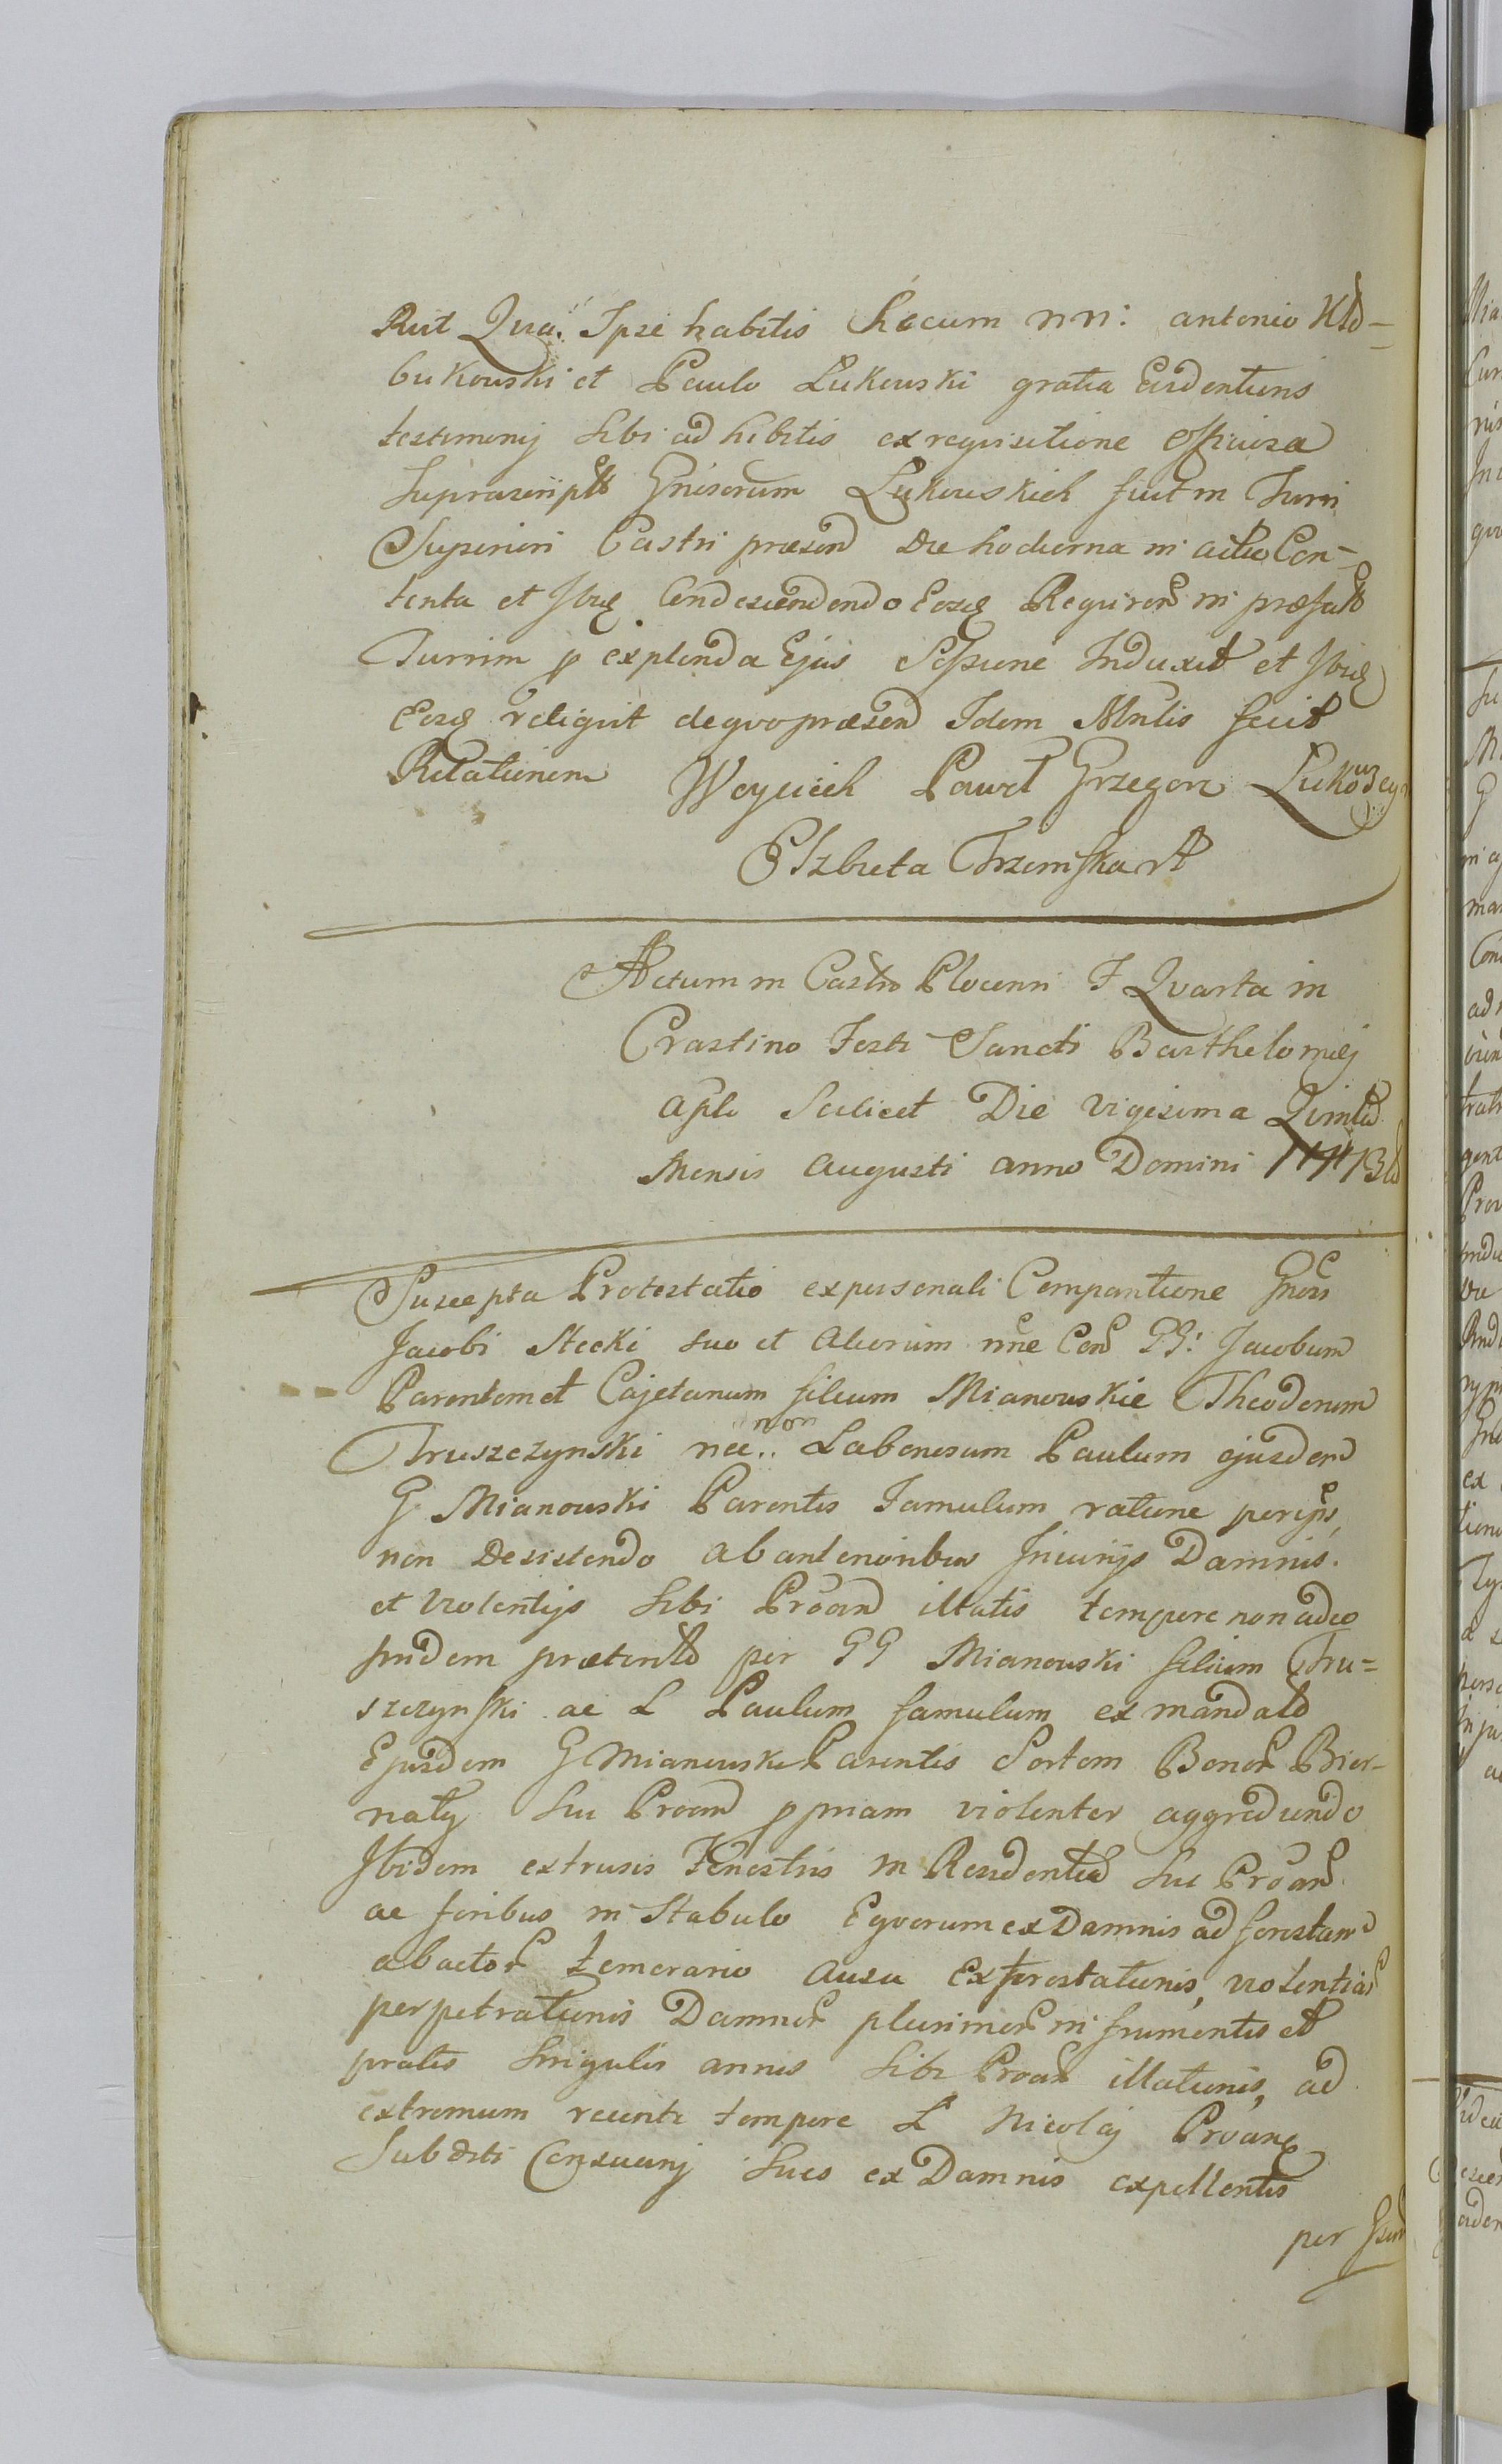 Ruit Qua. Ipse habitis Secum nn: antonio Kło-
bukowski et Paulo Łukowski gratia Evidentioris
testimonij sibi adhibitis ex requisitione officiosa
suprascript Gnisorum Łukowskich fuit in Turri
Superiori Castri præsen die hodierna in actu Con-
tenta et Ibiq Condescendendo Eosq Requiren in præfat
Turrim p explenda Ejus Sessione Induxit et Ibiq
Eosq reliquit de quo præsen Idem Mnlis fecit
Relationem Woyciech Paweł Grzegorz Łukow
Elzbieta Trzemska
Actum in Castro Plocen F Quarta in
Crastino Festi Sancti Barthelomiej
apli Scilicet Die vigesima Quinta
Mensis Augusti anno Domini
Suscepta Protestatio ex personali Comparitione Gnosi
Jacobi Stecki suo et Aliorum nne Con GG: Jacobum
Parentem et Cajetanum filium Mianowskie Theodorum
Truszczynski nec non Laboriosum Paulum ejusdem
G Mianowski Parentis Famulum ratione
non Desistendo ab anterioribus Iniurijs Damnis
et violentijs sibi Proan illatis tempore non adeo
pridem præterito per GG Mianowski filium Tru=
szczynski ac L Paulum famulum ex mandato
Ejusdem G Mianowski Parentis Sortem Bonor Bier-
naty sui Proan ppriam violenter aggrediendo
Ibidem extrusis Fenestris in Residentia sui Proan
ac foribus in Stabulo Equorum ex Damnis ad forestam
abactor temerario ausu Exforestationis, violentiar
perpetrationis Damnor plurimor in frumentis et
pratis singulis annis sibi Proan illationis, ad
extremum recenti tempore L Nicolaj Proan
Subditi Censuarij sues ex Damnis expellentis
per